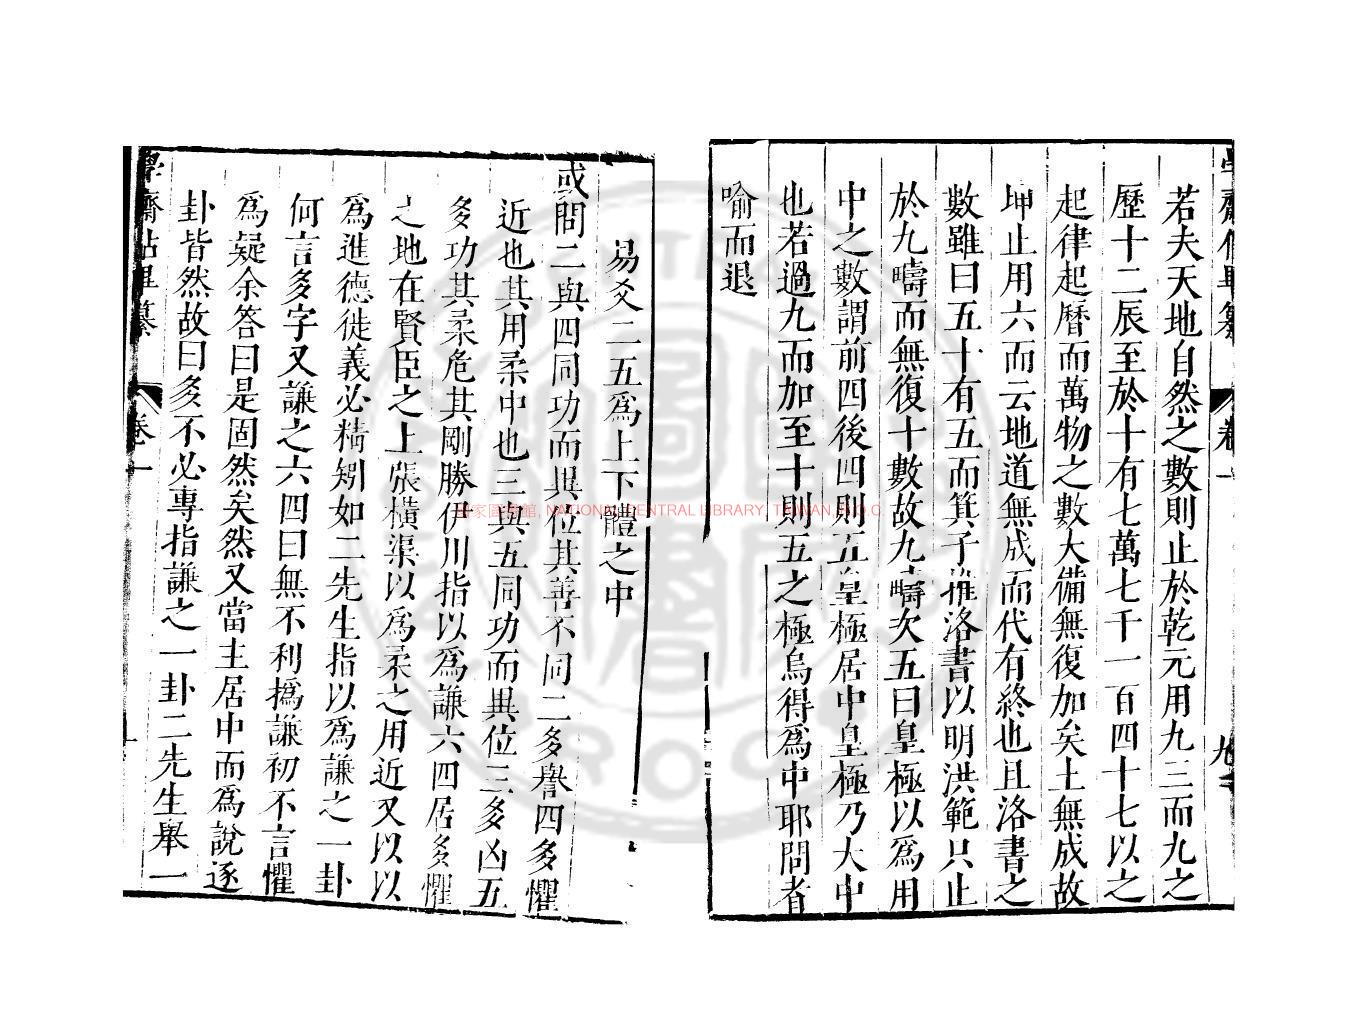 若夫天地自然之數則止於乾元用九三而九之
歷十二辰至於十有七萬七千一百四十七以之
起律起曆而萬物之數大備無復加矣土無成故
坤止用六而云地道無成而代有終也且洛書之
數雖曰五十有五而箕子推洛書以明洪範只止
於九疇而無復十數故九疇次五曰皇極以爲用
中之數謂前四後四則五皇極居中皇極乃大中
也若過九而加至十則五之極烏得爲中耶問者
喻而退
易爻二五爲上下體之中
或問二與四同功而異位其善不同二多譽四多懼
近也其用柔中也三與五同功而異位三多凶五
多功其柔危其剛勝伊川指以爲謙六四居多懼
之地在賢臣之上張橫渠以爲柔之用近又以以
爲進德徙義必精矧如二先生指以爲謙之一卦
何言多字又謙之六四曰無不利撝謙初不言懼
爲疑余答曰是固然矣然又當主居中而爲說逐
卦皆然故曰多不必專指謙之一卦二先生舉一
學齋佔畢纂 卷一
國家圖書館, NATIONAL CENTRAL LIBRARY, TAIWAN, R.O.C.